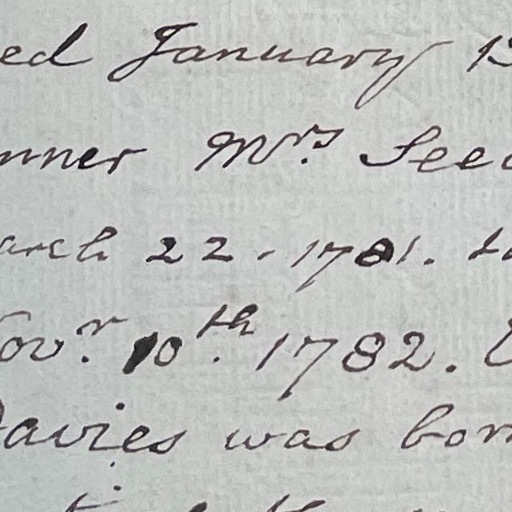 ed January 13
nner Mrs. See
arch 22. 1781. t
Novr. 10th. 1782.
Davies was born